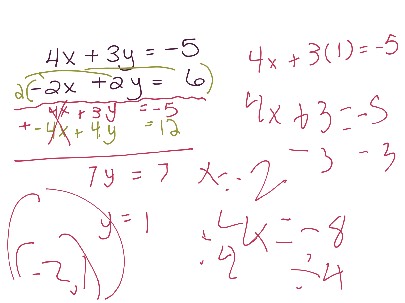 4x + 3y = -5
2(-2x + 2y = 6)
4x + 3y = -5
+ -4x + 4y = 12
7y = 7
y = 1
(-2, 1)
4x + 3(1) = -5
4x + 3 = -5
- 3 - 3
4x = -8
÷4 ÷4
x = -2